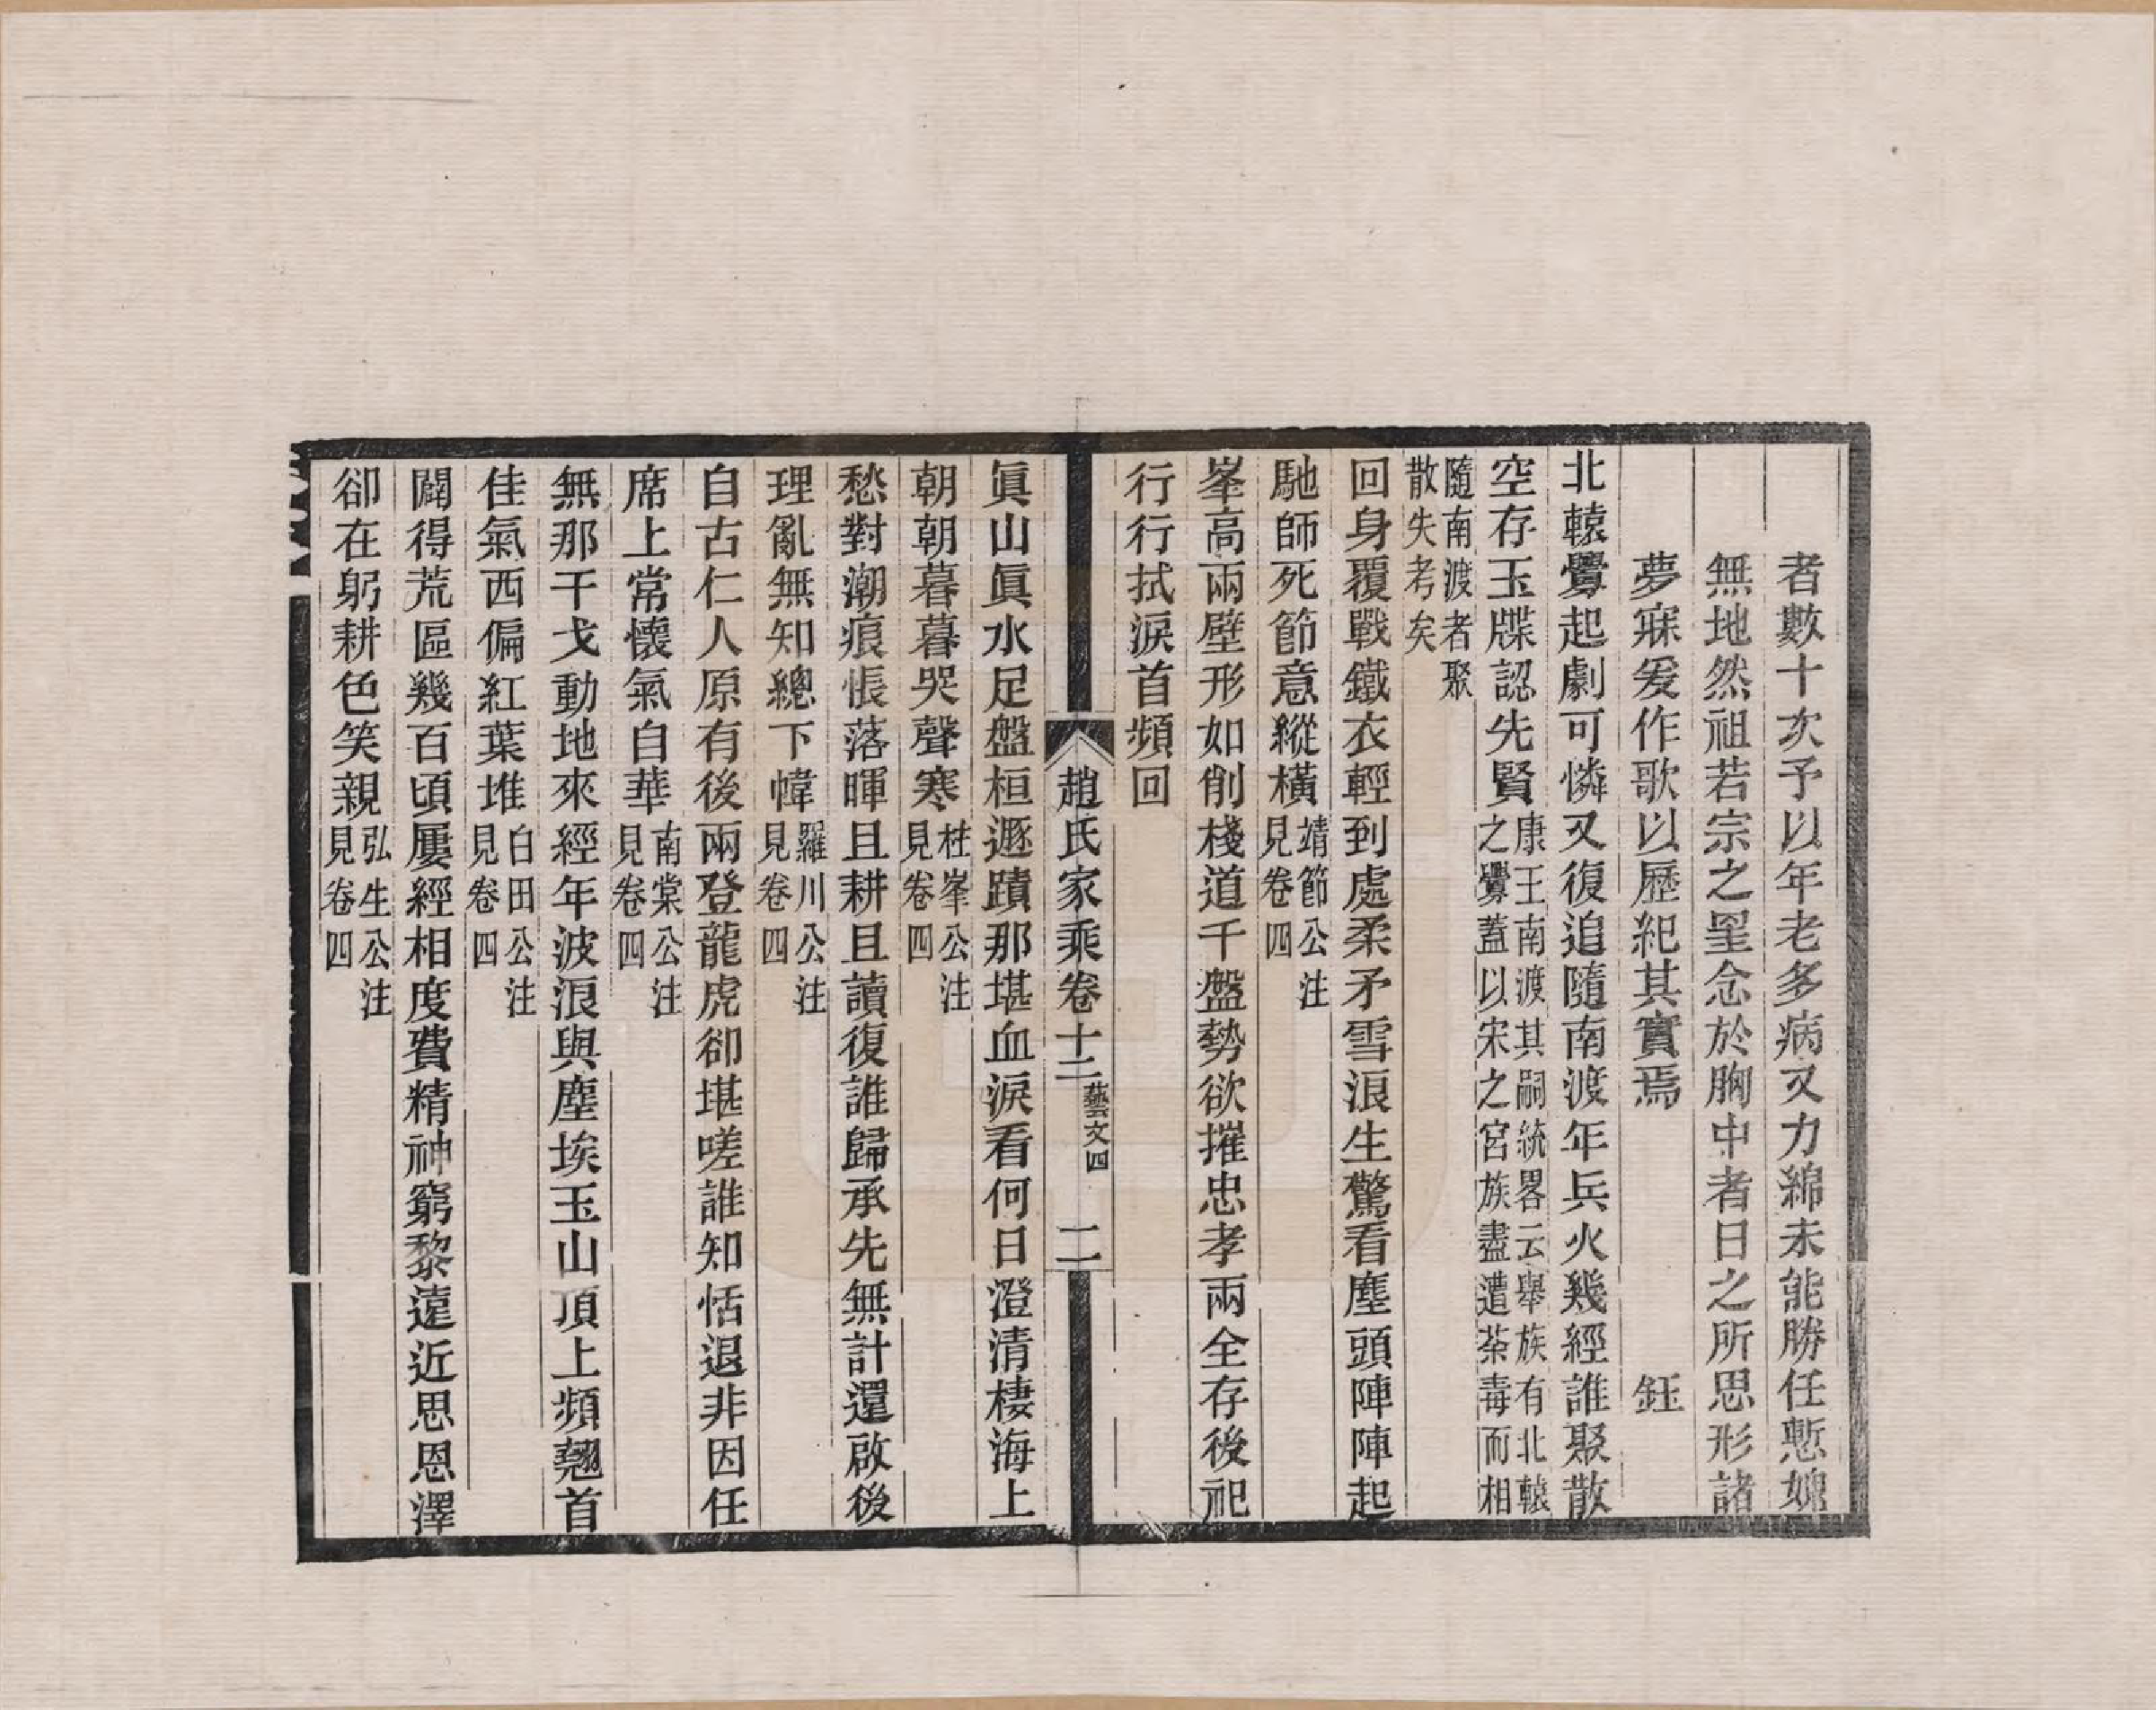 者數十次予以年老多病又力綿未能勝任慙媿
無地然祖若宗之置念於胸中者日之所思形諸
夢寐爰作歌以歷紀其實焉　鈺
北轅釁起劇可憐又復追隨南渡年兵火幾經誰聚散
空存玉牒認先賢康王南渡其嗣統畧云舉族有北轅
之釁蓋以宋之宮族盡遭荼毒而相
隨南渡者聚
散失考矣
回身覆戰鐵衣輕到處柔矛雪浪生驚看塵頭陣陣起
馳師死節意縱橫靖節公注
見卷四
峯高兩壁形如削棧道千盤勢欲摧忠孝兩全存後祀
行行拭淚首頻回
趙氏家乘卷十二　藝文四　二
眞山眞水足盤桓遯蹟那堪血淚看何日澄清棲海上
朝朝暮暮哭聲寒桂峯公注
見卷四
愁對潮痕悵落暉且耕且讀復誰歸承先無計還啟後
理亂無知總下幃羅川公注
見卷四
自古仁人原有後兩登龍虎卻堪嗟誰知恬退非因任
席上常懷氣自華南棠公注
見卷四
無那干戈動地來經年波浪與塵埃玉山頂上頻翹首
佳氣西偏紅葉堆白田公注
見卷四
闢得荒區幾百頃屢經相度費精神窮黎遠近思恩澤
卻在躬耕色笑親弘生公注
見卷四